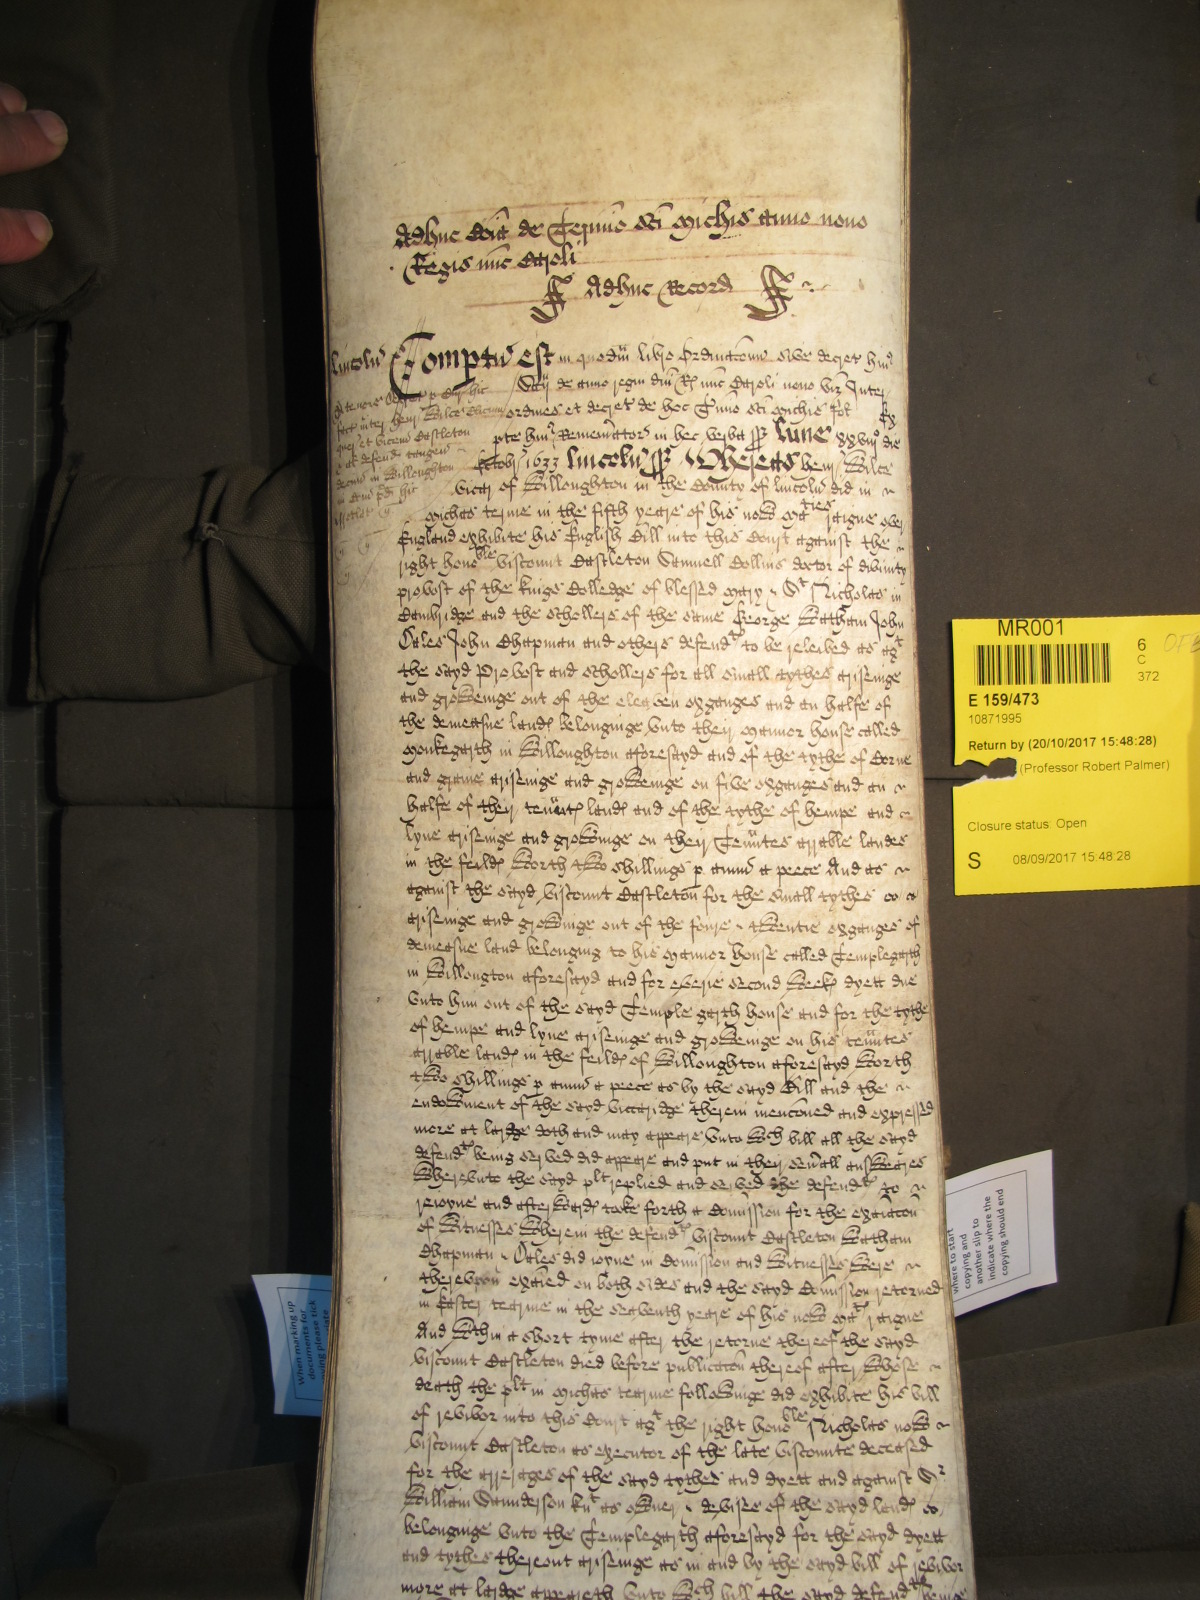 Adhuc Cōia de Termīo Scī Michis anno nono
Regis nūc Caroli
Adhuc Record
Lincoln̄ Comptū est in quodm̄ libro Ordinacoñ sive decret huī
Sccīj de anno regni dnī R nūc Caroli nono viz Inter
ordines et decret de hoc Tmīo Scī Michis rot
pte huī Rememorator in hec verba Lune xxviijo die
Octobr 1633 Lincoln̄ Whereas henr
viccar of Willoughton in the County of Lincoln̄ did in
Michās terme in the fifth yeare of his nowe Maties raigne over
England exhibite his English Bill into this Court against the
right honoble Viscount Castleton Samuell Collins doctor of divinity
provost of the Kings Colledge of blessed Mary & St Nicholas in
Cambridge and the schollers of the same George Watham John
Cales John Chapman and others defendts to be releived as agt
the sayd Provost and schollers for all small tythes ariseinge
and groweinge out of the eleaven oxganges and an halfe of
the demeasne lands belonginge unto their mannor house called
Monkegarth in Willoughton aforesayd and of the tythe of Corne
and graine ariseinge and groweinge on five oxganges and an
halfe of their tennts lands and of the tythe of hempe and
lyne ariseinge and growinge on their Tennts arrable landes
in the feilds worth two shillings p annū a peece And as
against the sayd Viscount Castleton for the small tythes soe
ariseinge and growinge out of the foure & twentie oxganges of
demeasne land belonging to his mannor house called Templegarth
in Willongton aforesayd and for everie second weeks dyett due
unto him out of the sayd Temple garth house and for the tythe
of hempe and lyne ariseinge and groweinge on his tennts
arrable lands in the feilds of Willoughton aforesayd worth
two shillings p annū a peece as by the sayd Bill and the
endowment of the sayd viccaridge therein menconed and expressed
more at lardge doth and may appeare Unto wch bill all the sayd
defendts being served did appeare and put in their severall answeares
Whereunto the sayd plt replied and served the defendts to
reioyne and afterwards take forth a Comission for the exāiacon
of witnesses wherein the defendts Viscount Castleton Watham
Chapman & Cales did ioyne in Comission and witnesses were
thereupon exaied on both sides and the sayd Comission retorned
in Easter tearme in the seaventh yeare of his nowe Mats raigne
And wthin a short tyme after the retorne thereof the sayd
Viscount Castleton died before publicacon thereof after whose
death the plt in Michas tearme followinge did exhibite his bill
of revivor into this Court agt the right honoble Nicholas nowe
Viscount Castleton as executor of the late Viscounte deceased
for the arrerages of the sayd tythes and dyett and against Sr
William Saunderson knt as owner & devisee of the sayd lands soe
belonginge unto the Templegarth aforesayd for the sayd dyett
and tythes thereout ariseinge as in and by the sayd bill of revivor
more at lardge appeareth Unto wch bill the sayd defendts beinge
MR001
6
C
372
E 159/473
10871995
Return by (20/10/2017 15:48:28)
(Professor Robert Palmer)
Closure status: Open
S 08/09/2017 15:48:28
where to start
copying and
another slip to
indicate where the
copying should end
When marking up
documents for
please tick